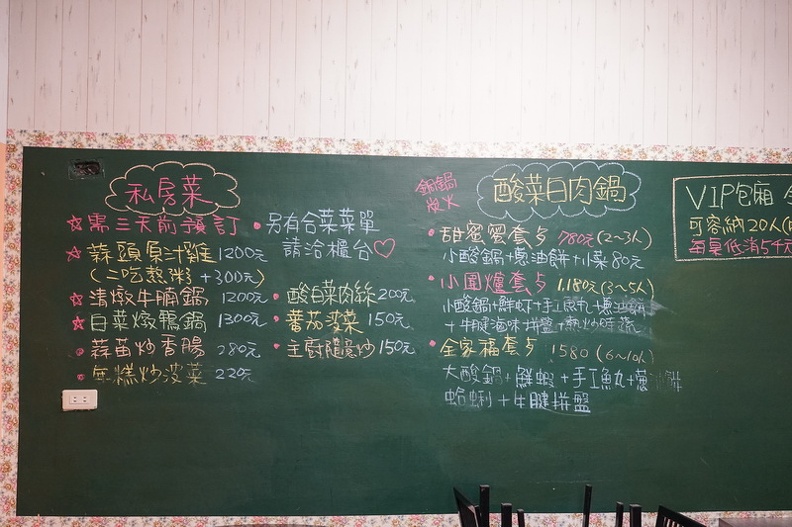 私房菜
☆需三天前預訂
☆蒜頭原汁雞1200元
(二吃熬粥+300元)
☆清燉牛腩鍋1200元
☆白菜燉鴨鍋1300元
•蒜苗炒香腸280元
•年糕炒菠菜220元
•另有合菜菜單
請洽櫃台♡
•酸白菜肉絲200元
•蕃茄菠菜150元
•主廚隨意炒150元
銅鍋
炭火
酸菜白肉鍋
•甜蜜蜜套歺780元(2~3人)
小酸鍋+蔥油餅+小菜80元
•小圍爐套歺1,180元(3~5人)
小酸鍋+鮮蚵+手工魚丸+蔥油餅
+牛腱滷味拼盤+熱炒時蔬
•全家福套歺1580(6~10人)
大酸鍋+鮮蝦+手工魚丸+蔥油餅
蛤蜊+牛腱拼盤
VIP包廂
可容納20人
每桌低消5千元